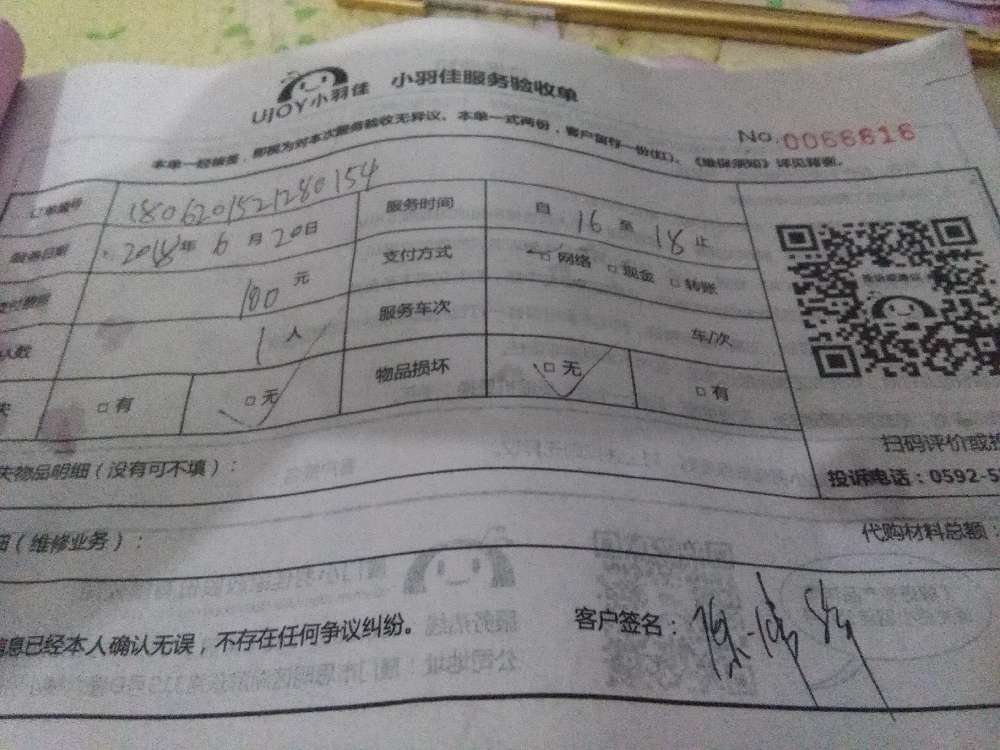 UJOY小羽佳 小羽佳服务验收单
No.0066616
本单一经核签,即视为对本次服务验收无异议。本单一式两份,客户留存一份(红)。《维保须知》详见背面。
订单编号 1806201521280154 服务时间 自 16 至 18 止
服务日期 2018年 6 月 20日 支付方式 □ 网络 □ 现金 □ 转账
100 元 服务车次 车/次
人数 1 人
□ 有 □ 无 物品损坏 □ 无 □ 有
扫码评价或
失物品明细(没有可不填):
投诉电话:0592-5
(维修业务):
代购材料总额:
信息已经本人确认无误,不存在任何争议纠纷。 客户签名: